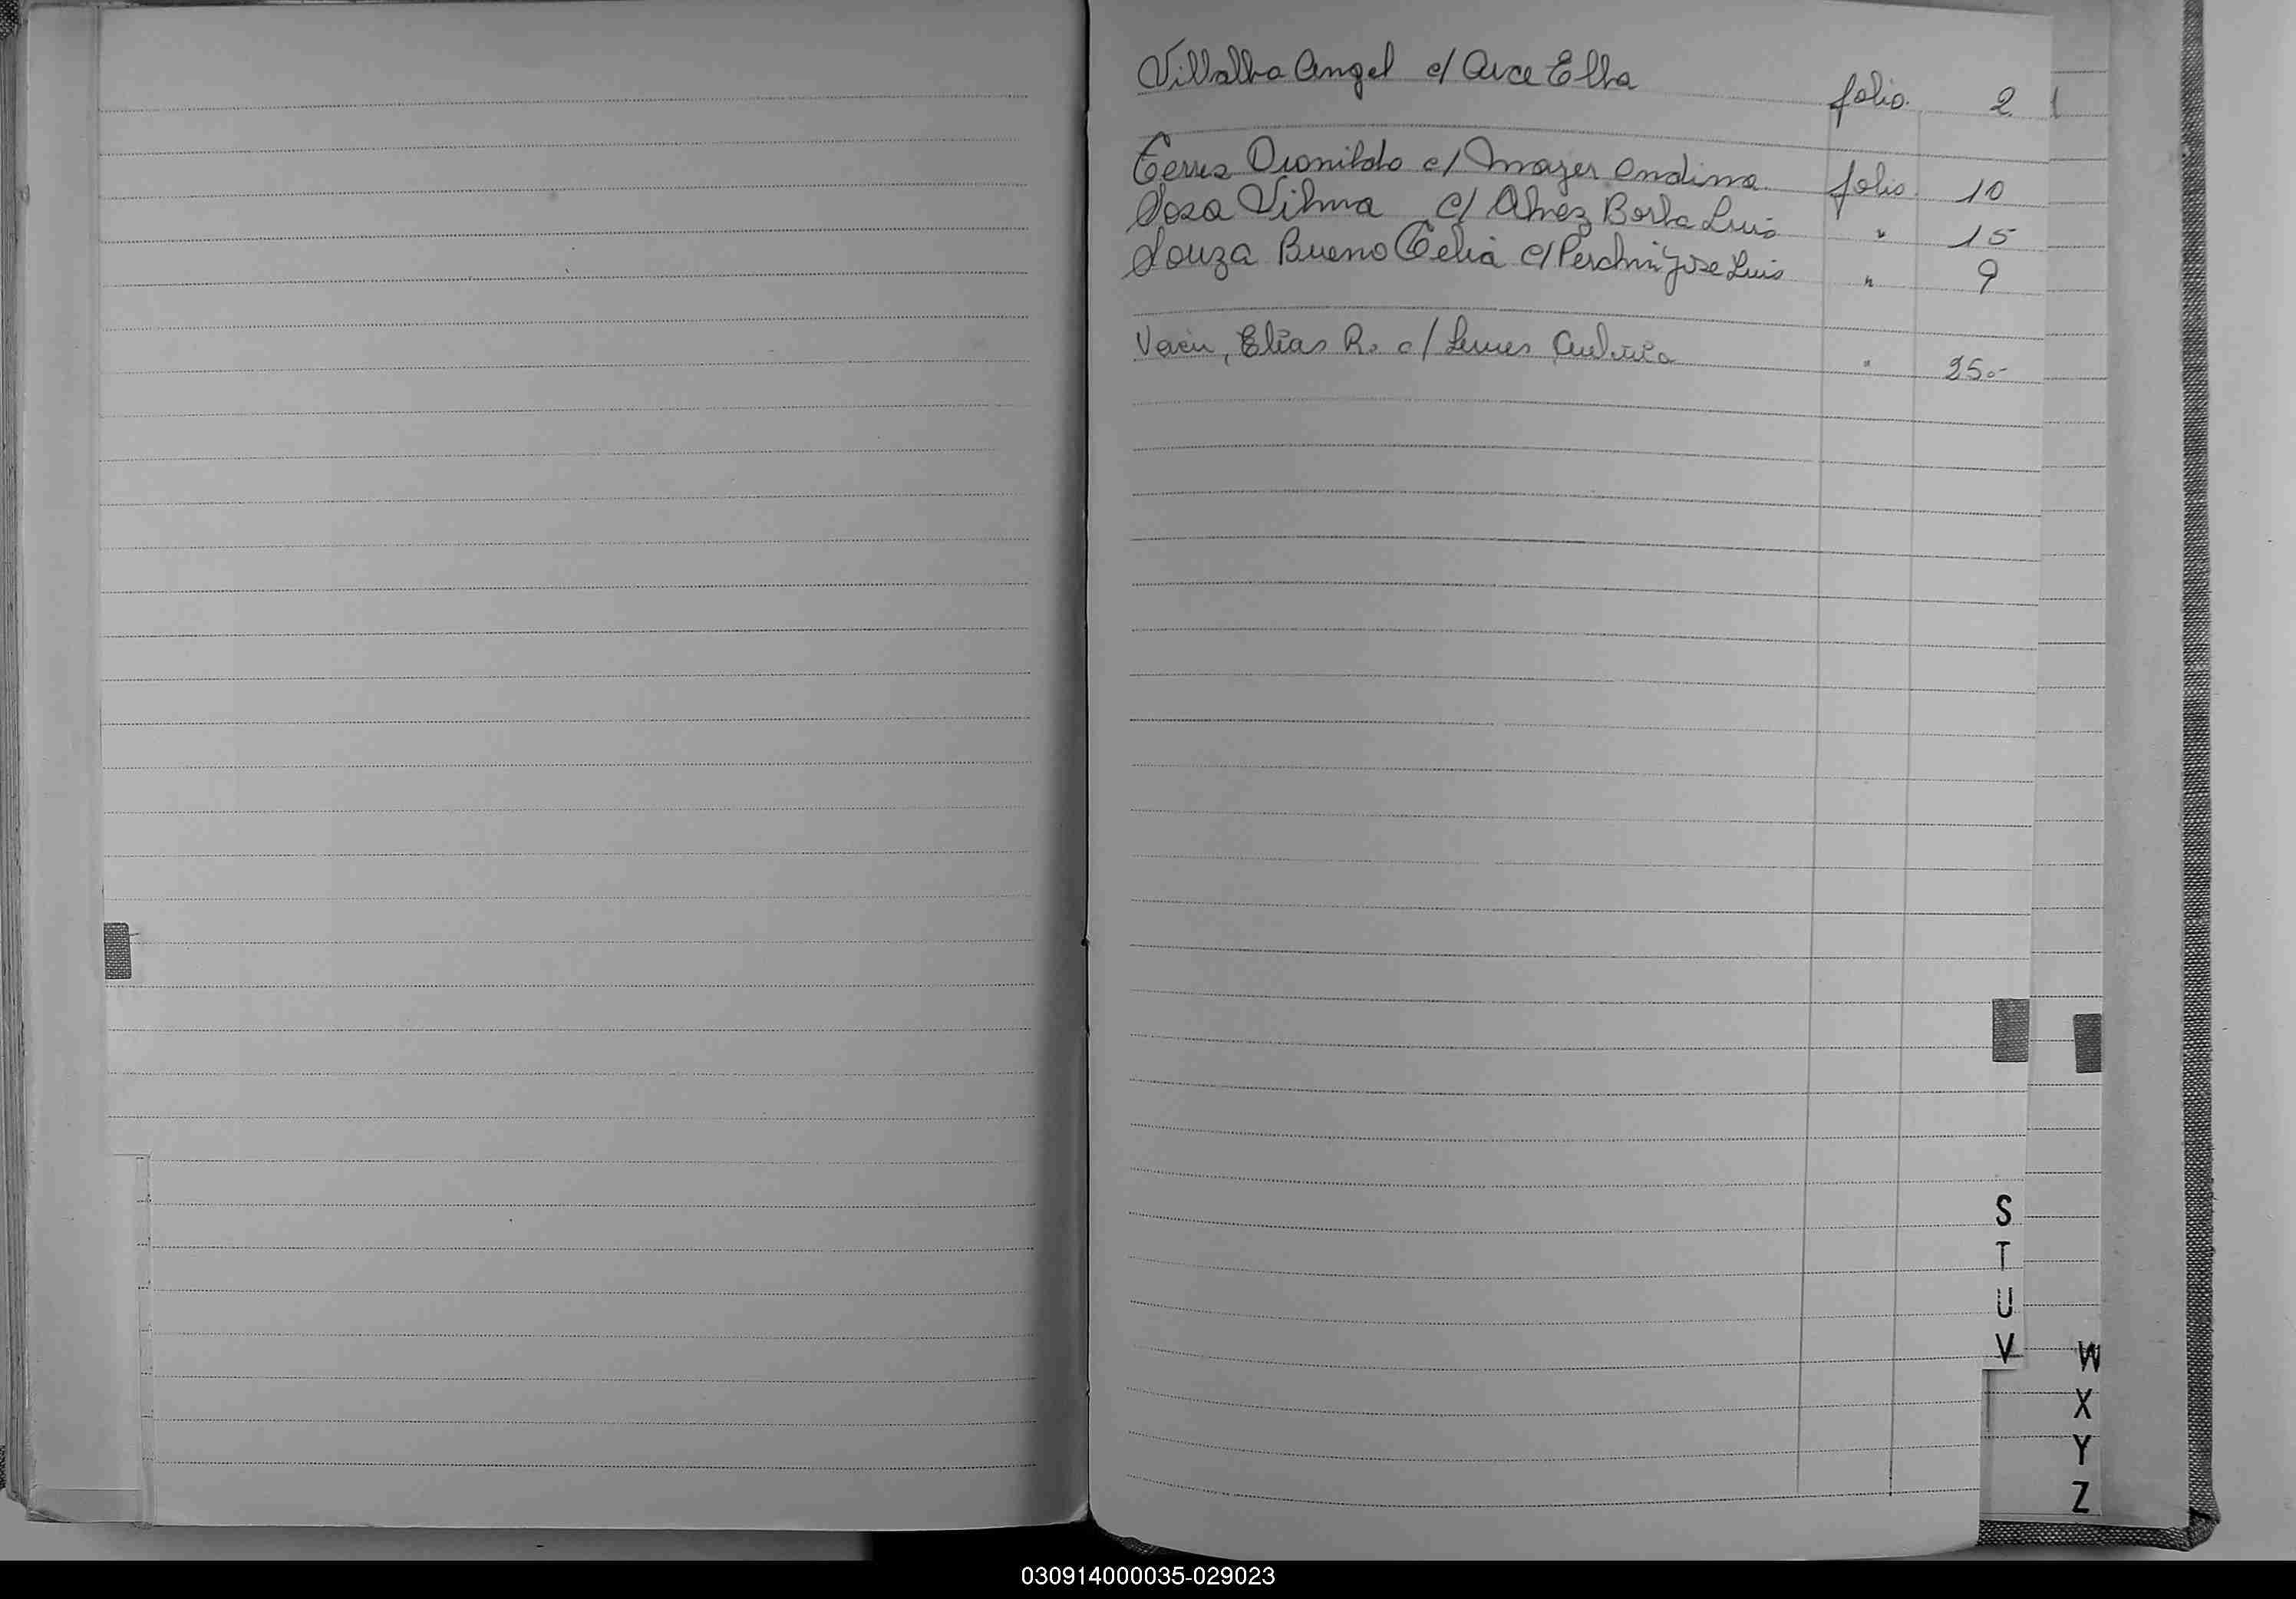 Villalba Angel c/ Arce Elba folio. 2
Dionildo c/ Mayer Ondina folio. 10
Sosa Vilma c/ Alvez Borba Luis " 15
Souza Bueno Celia c/ Perchin Jose Luis " 9
Elías R. c/ Lemes " 25.-
S
T
U
V
W
X
Y
Z
030914000035-029023